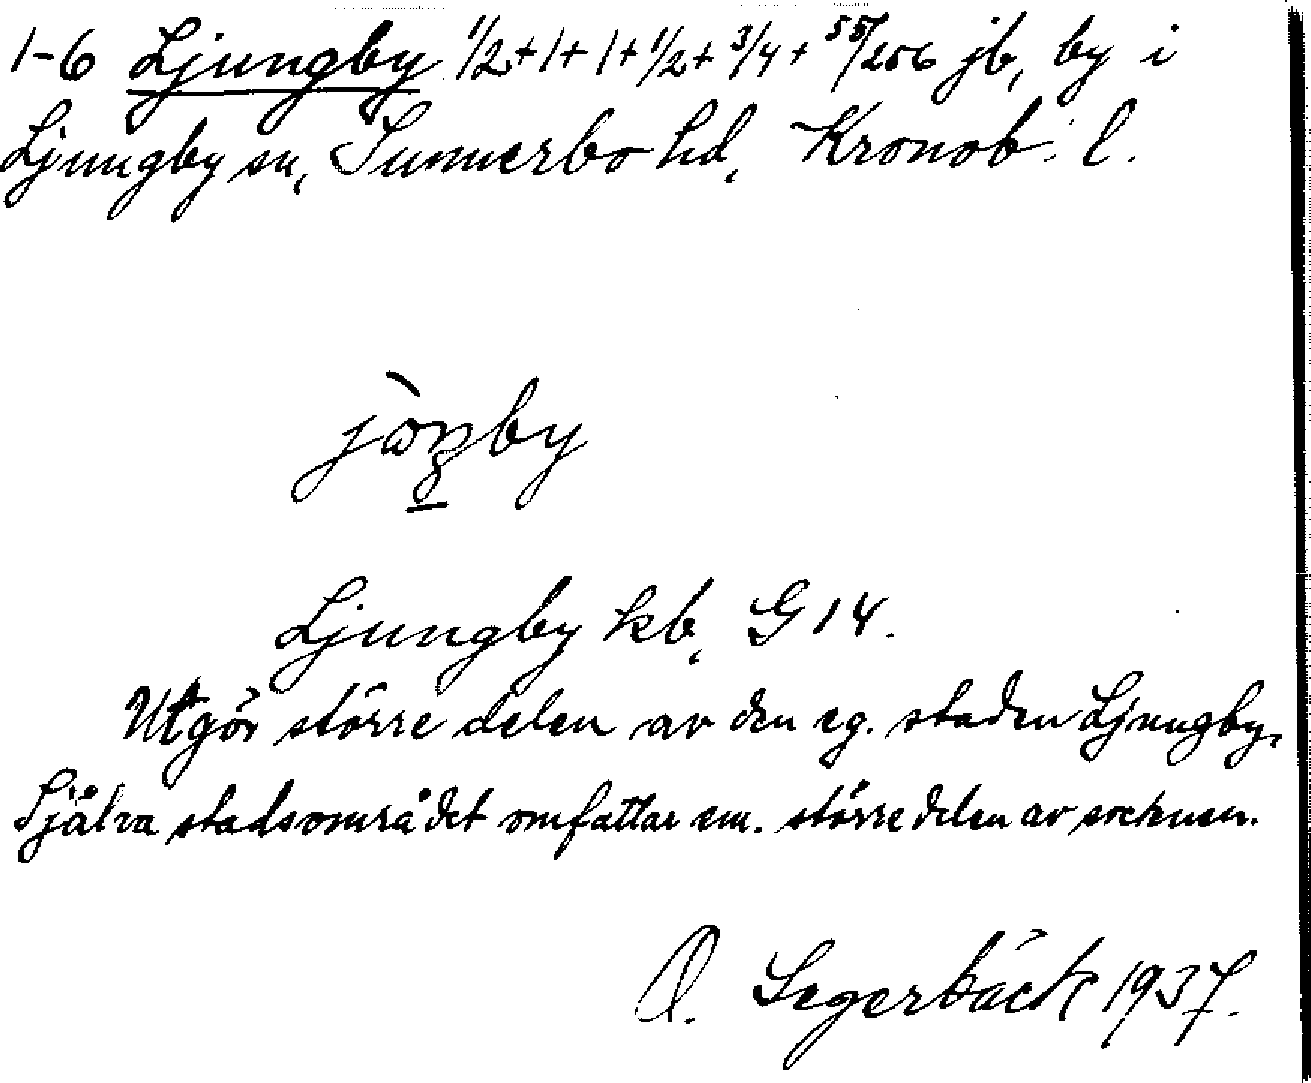 1-6 Ljungby 1/2+1+1+1/2+3/4+55/256 jb, by i
Ljungby sn, Sunnerbo hd, Kronob. l.
jòŋby
Ljungby kb, G 14.
Utgör större delen av den eg. staden Ljungby.
Själva stadsområdet omfattar em. större delen av socknen.
O. Segerbäck 1937.